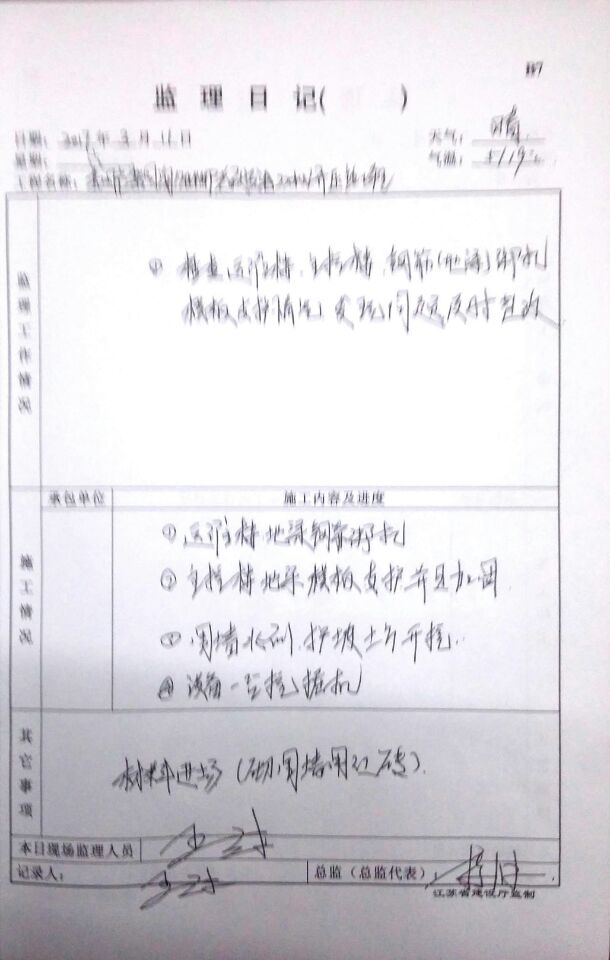 B7
监理日记( )
日期：2017年3月16日
天气：晴
星期：
气温：
工程名称：
监理工作情况
① 检查运维楼、主控楼、钢筋(地梁)绑扎
模板支护情况，发现问题及时整改
承包单位 施工内容及进度
施工情况
① 运维楼地梁钢筋绑扎
② 主控楼地梁模板支护并且加固
③ 围墙水沟、护坡土方开挖.
④ 设备一台挖掘机
其它事项
材料进场（砌围墙用过砖）.
本日现场监理人员
记录人：
总监（总监代表）
江苏省建设厅监制